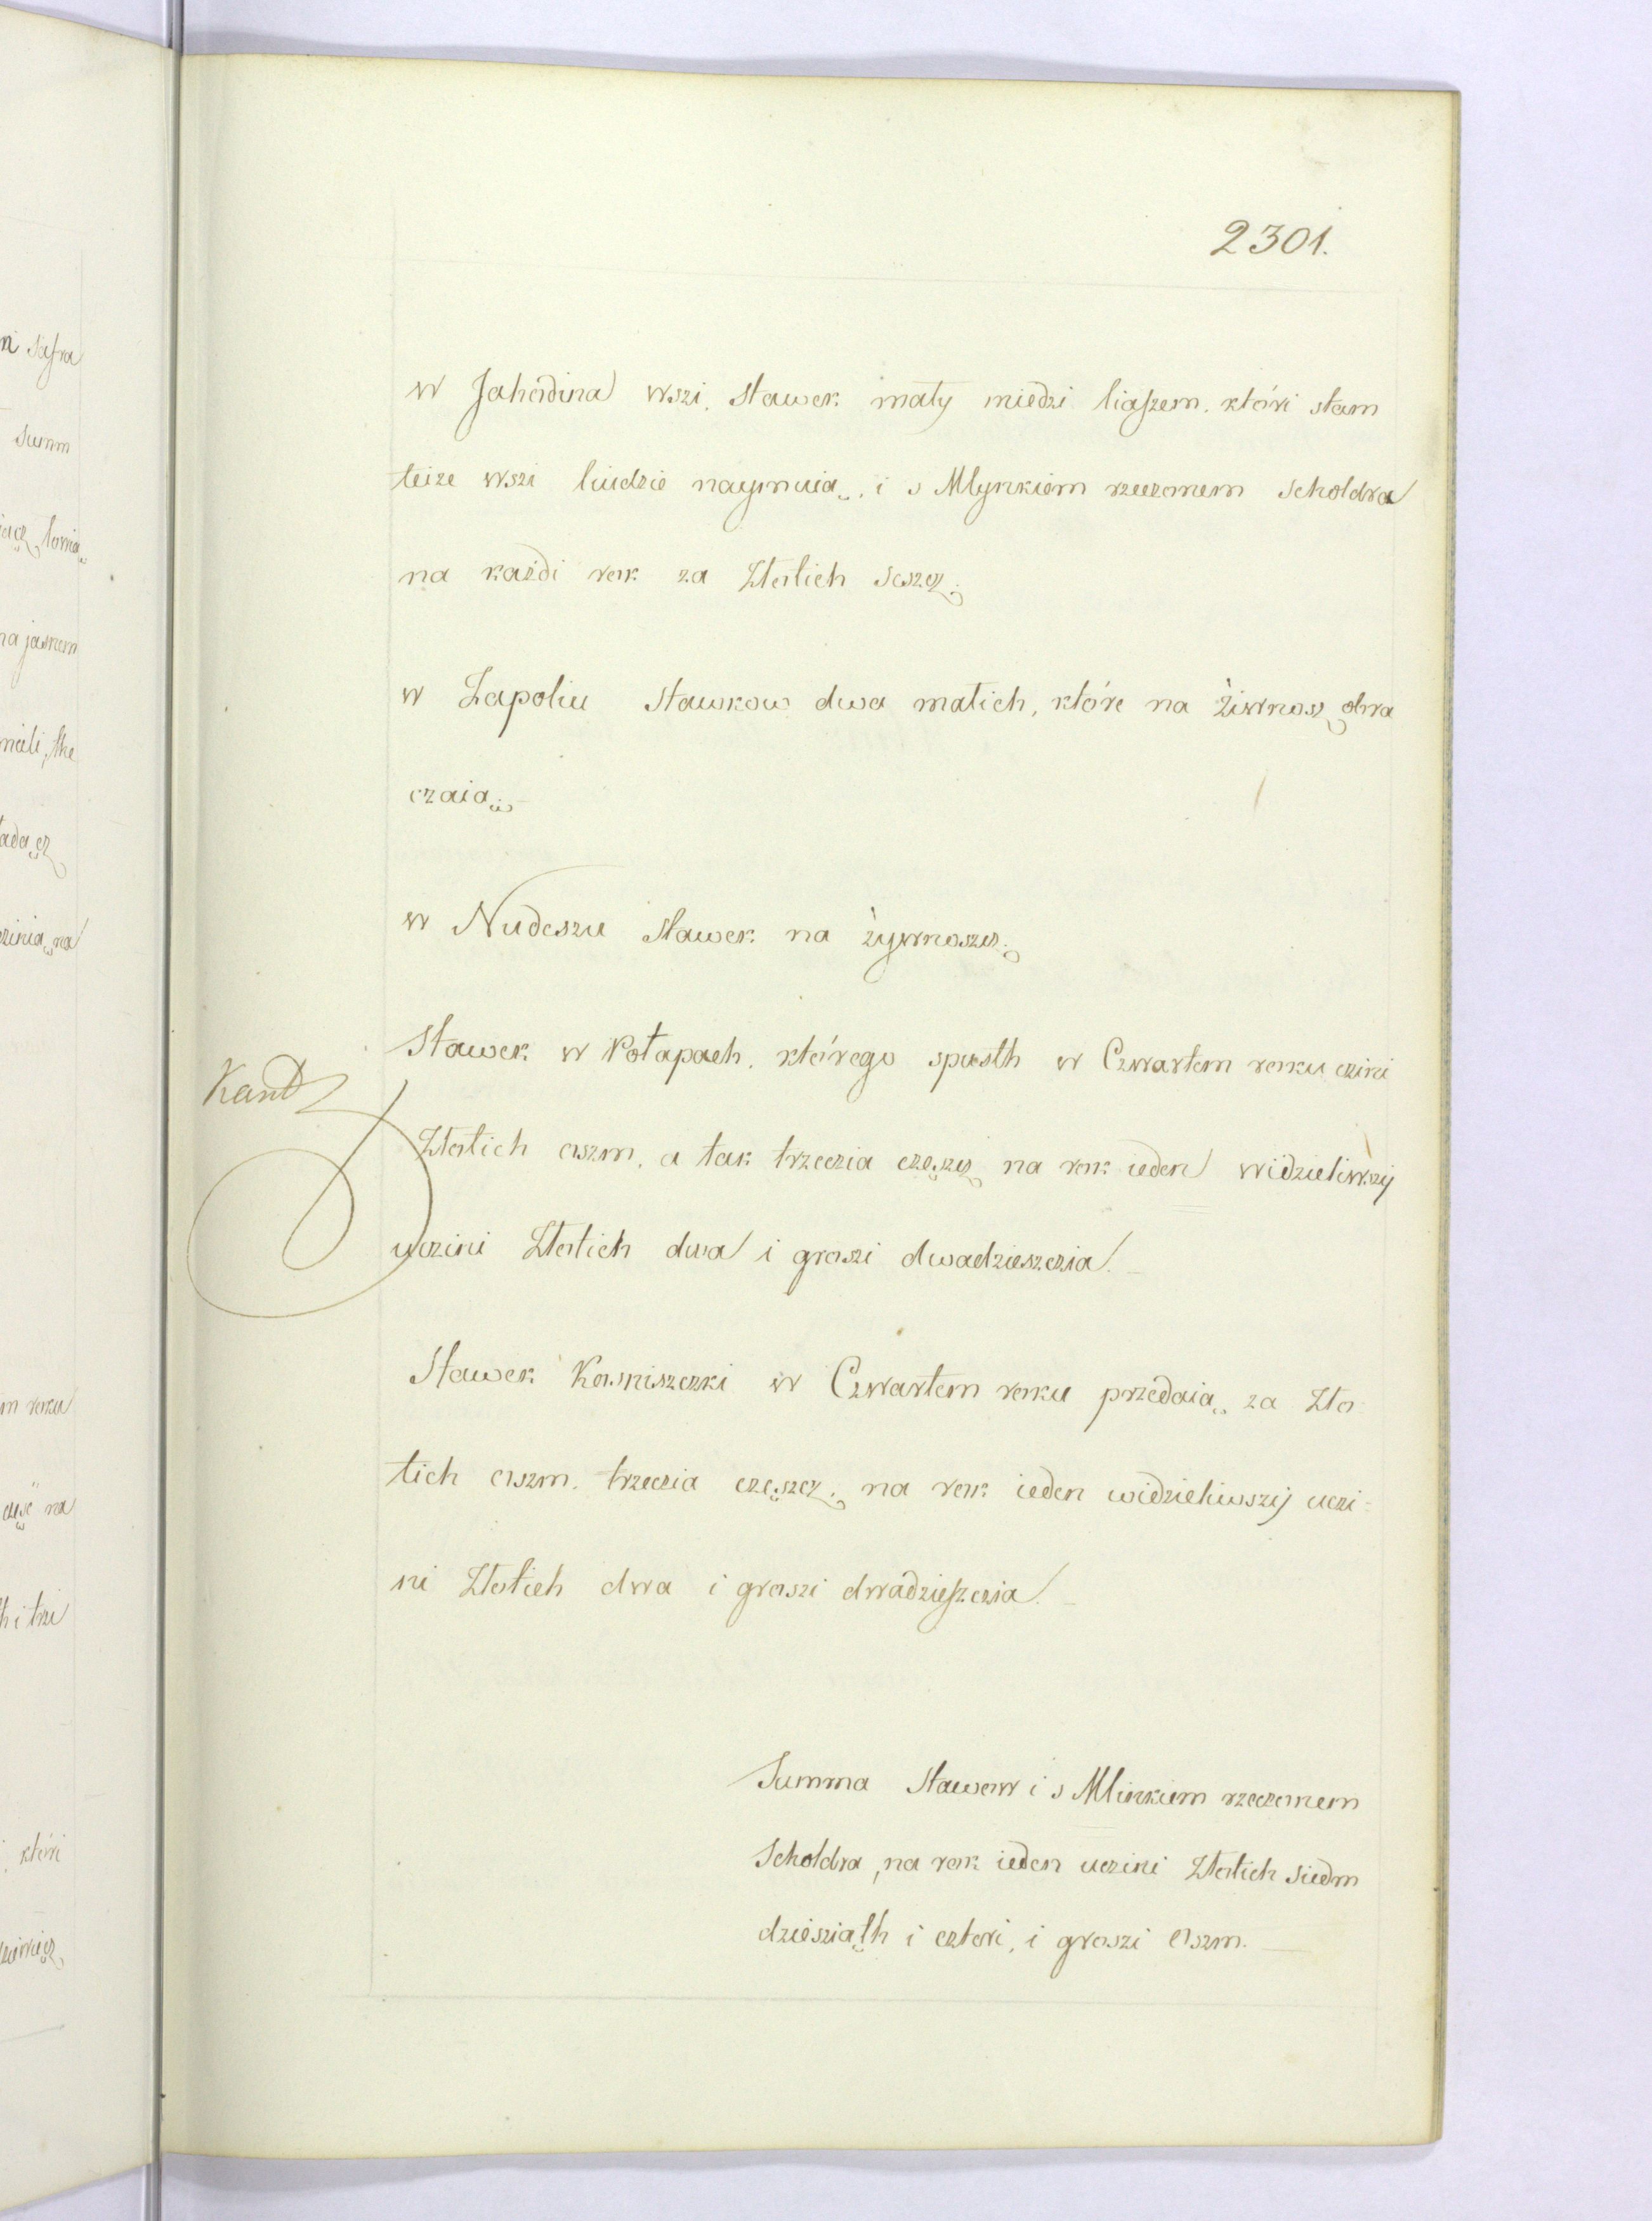 2301.
w Jahodina wszi, stawek maly miedzi liaszem, które stam
teize wszi liudzie naymuia, i s Mlynkiem rzeczonem Scholdra
na każdi rok za Złotich szescz.
w Zapoliu stawkow dwa malich, które na żiwnosz obra
czaia
w Nudeszu stawek na żywnoszcz.
Stawek w Potapach, którego spusth w Czwartem roku czini
Złotich oszm, a tak trzeczia częszcz na rok ieden widzieliwszij
uczini Złotich dwa i groszi dwadzieszczia.
Kand
Stawek Kosniszczki w Czwartem roku przedaia za Zło
tich oszm, trzeczia częszcz, na rok ieden widzieliwszij uczi=
ni Złotich dwa i groszi dwadzieszczia.
Summa Stawow i s Mlinkiem rzeczonem
Scholdra, na rok ieden uczini Złotich siedm
dziesziąth i cztori, i groszi Oszm.